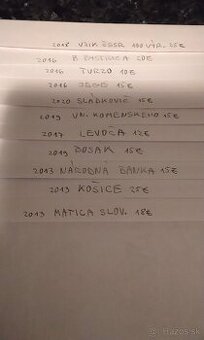 2018 VZNIK ČSSR 100 VÝR. 25€
2016 B. BYSTRICA 20€
2016 TURZO 10€
2016 JESSE 15€
2020 SLÁDKOVIČ 15€
2019 UN. KOMENSKÉHO 15€
2017 LEVOČA 12€
2019 BOSAK 15€
2013 NÁRODNÁ BANKA 15€
2013 KOŠICE 25€
2013 MATICA SLOV. 18€
bazos.sk